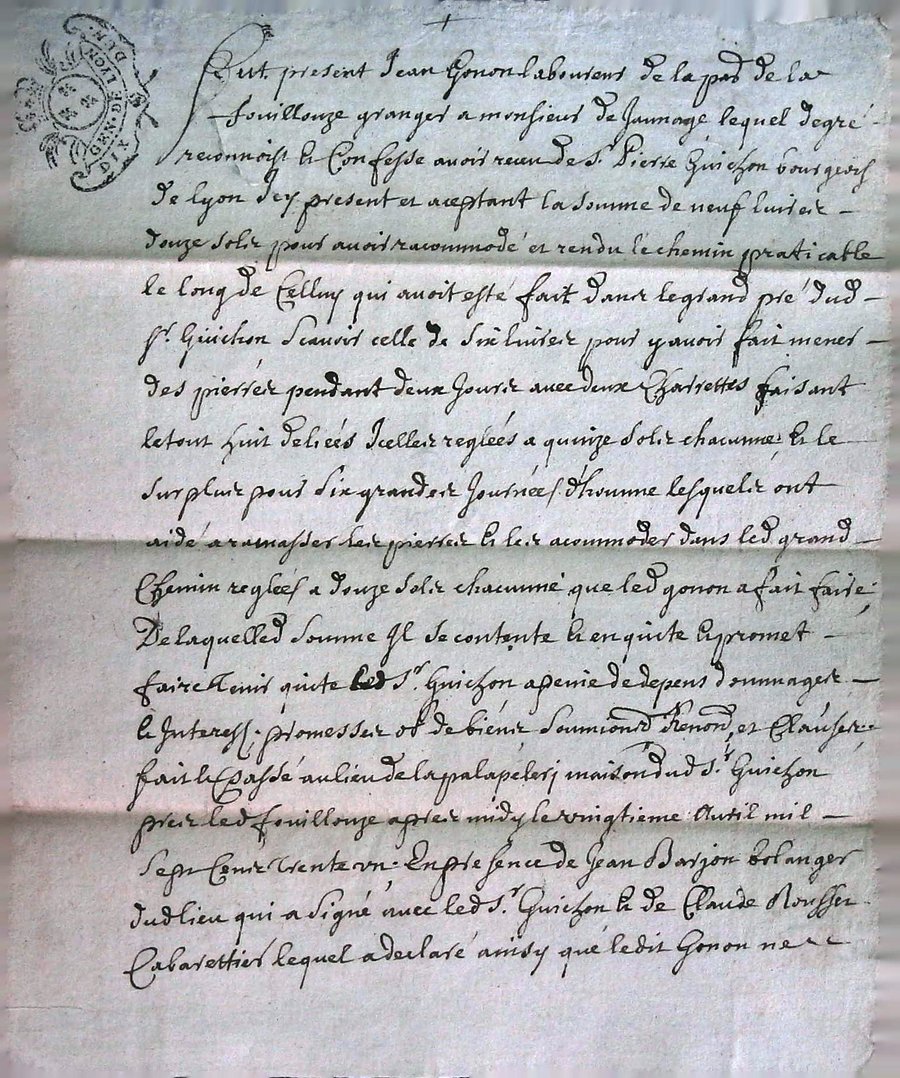 GEN·DE·LYON
DIX DEN·
Fut present Jean Gonon laboureur de la par de la
fouillouze granger a monsieur de Jaunage lequel degré
reconnoist et Confesse avoir receu de Sr. Pierre Guichon bourgeois
de lyon Icy present et aceptant la somme de neuf livres
douze solz pour avoir racommodé et rendu le chemin praticable
le long de Celluy qui avoit esté fait dans le grand pré dud
Sr. Guichon Scavoir celle de six livres pour y avoir fait mener
des pierres pendant deux Jours avec deux Charrettes faisant
le tout huit Icelles reglées a quinze solz chacunne et le
surplus pour six grandes Journées d'homme lesquels ont
aidé a ramasser les pierres et les acommoder dans led grand
Chemin reglées a douze solz chacunne que led gonon a fait faire
De laquelled somme Il se contente et en quitte et promet
faire tenir quitte led Sr. Guichon a peine de depens dommages
et Interests. promesses ob de biens Soum Renond et Clauses.
fait et Passé au lieu de la maison dud Sr. Guichon
pres led fouillouze apres midy le vingtieme Avril mil
sept Cens trente un. En presence de Jean Barjon bolanger
dud lieu qui a signé avec led Sr. Guichon et de Claude Rousset
Cabarettier lequel a declaré ainsy que ledit Gonon ne